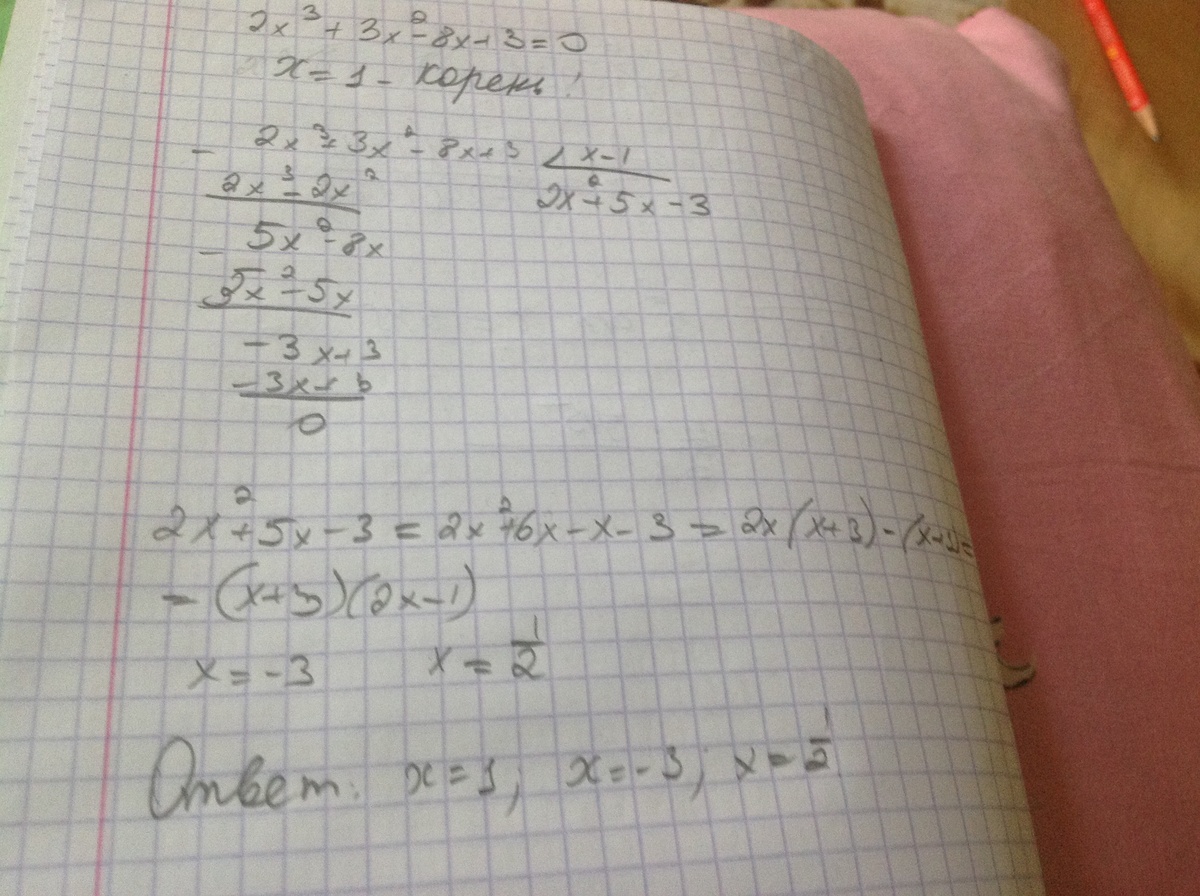 2x³ + 3x² - 8x + 3 = 0
x = 1 - корень!
- 2x³ + 3x² - 8x + 3 ∠ x - 1
2x³ - 2x² 2x² + 5x - 3
- 5x² - 8x
5x² - 5x
- 3x + 3
- 3x + 3
0
2x² + 5x - 3 = 2x² + 6x - x - 3 = 2x(x+3) - (x+3) =
= (x+3)(2x-1)
x = -3 x = 1/2
Ответ: x = 1; x = -3; x = 1/2